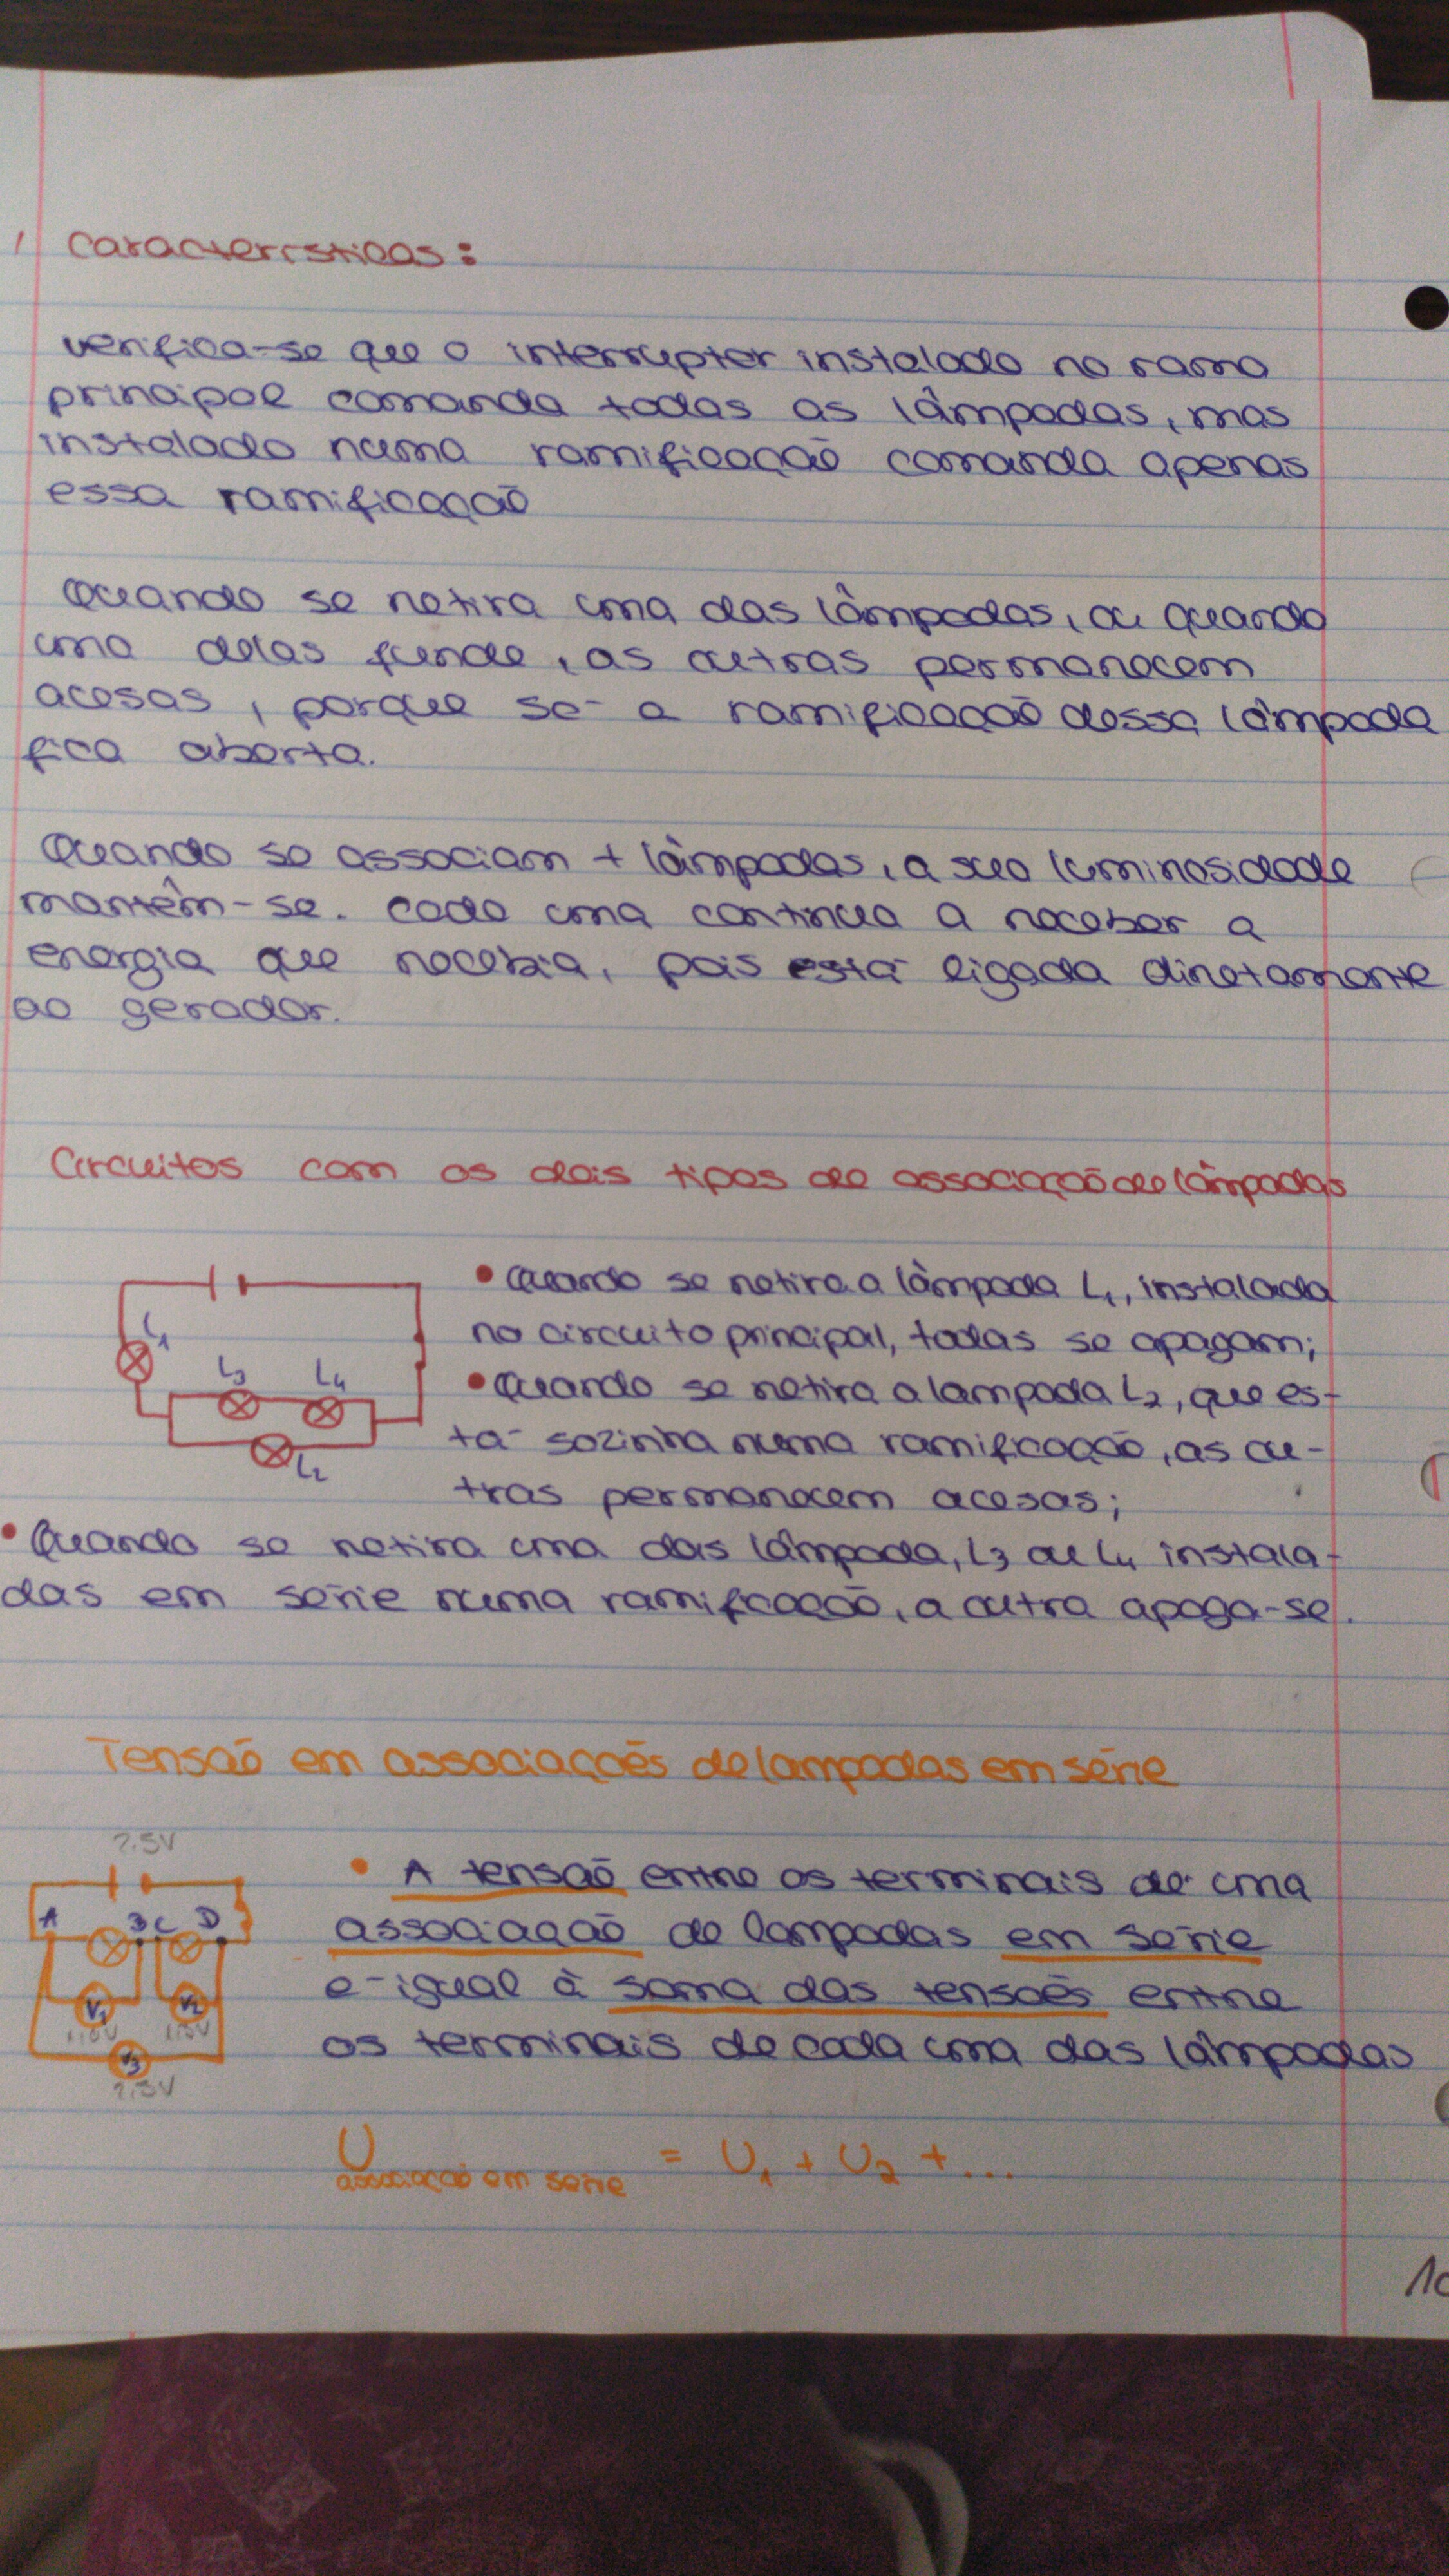 Características:
verifica-se que o interrupter instalado no ramo
principal comanda todas as lâmpadas, mas
instalado numa ramificação comanda apenas
essa ramificação
Quando se retira uma das lâmpadas, ou quando
uma delas funde, as outras permanecem
acesas, porque só a ramificação dessa lâmpada
fica aberta.
Quando se associam + lâmpadas, a sua luminosidade
mantêm-se. Cada uma continua a receber a
energia que recebia, pois está ligada diretamente
ao gerador.
Circuitos com os dois tipos de associação de lâmpadas
• Quando se retira a lâmpada L1, instalada
no circuito principal, todas se apagam;
L1
L3 L4
L2
• Quando se retira a lampada L2, que es-
tá sozinha numa ramificação, as ou-
tras permanecem acesas;
• Quando se retira uma das lâmpada, L3 ou L4 instala-
das em série numa ramificação, a outra apaga-se.
Tensão em associações de lampadas em série
A B C D
V1 V2
V3
• A tensão entre os terminais de uma
associação de lampadas em série
é igual à soma das tensões entre
os terminais de cada uma das lâmpadas
U associação em série = U1 + U2 + ...